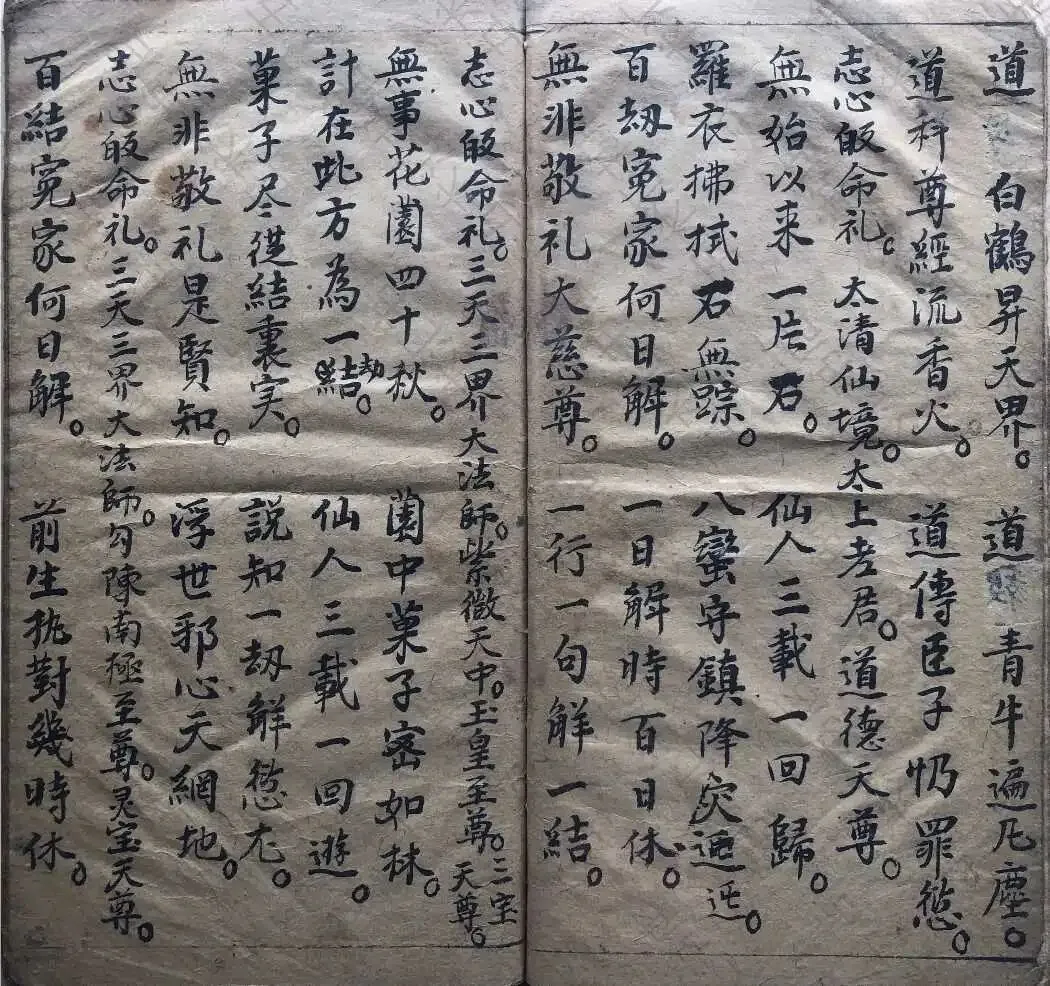 道 白鶴昇天界。 道 青牛遍凡塵。
道科尊經流香火。 道傳臣子忏罪愆。
志心皈命礼。 太清仙境。太上老君。道德天尊。
無始以来一片石。 仙人三載一回歸。
羅衣拂拭石無踪。 八蛮守鎮降灾
百劫寃家何日解。 一日解時百日休。
無非敬礼大慈尊。 一行一句解一結。
志心皈命礼。三天三界大法師。紫微天中。玉皇至尊。三宝天尊。
無事花園四十秋。 園中菓子密如林。
計在此方為一劫。 仙人三載一回遊。
菓子尽從結裏实。 説知一劫解愆尤。
無非敬礼是賢知。 浮世邪心天網地。
志心皈命礼。三天三界大法師。勾陳南極至尊。灵宝天尊。
百結寃家何日解。 前生执對幾時休。